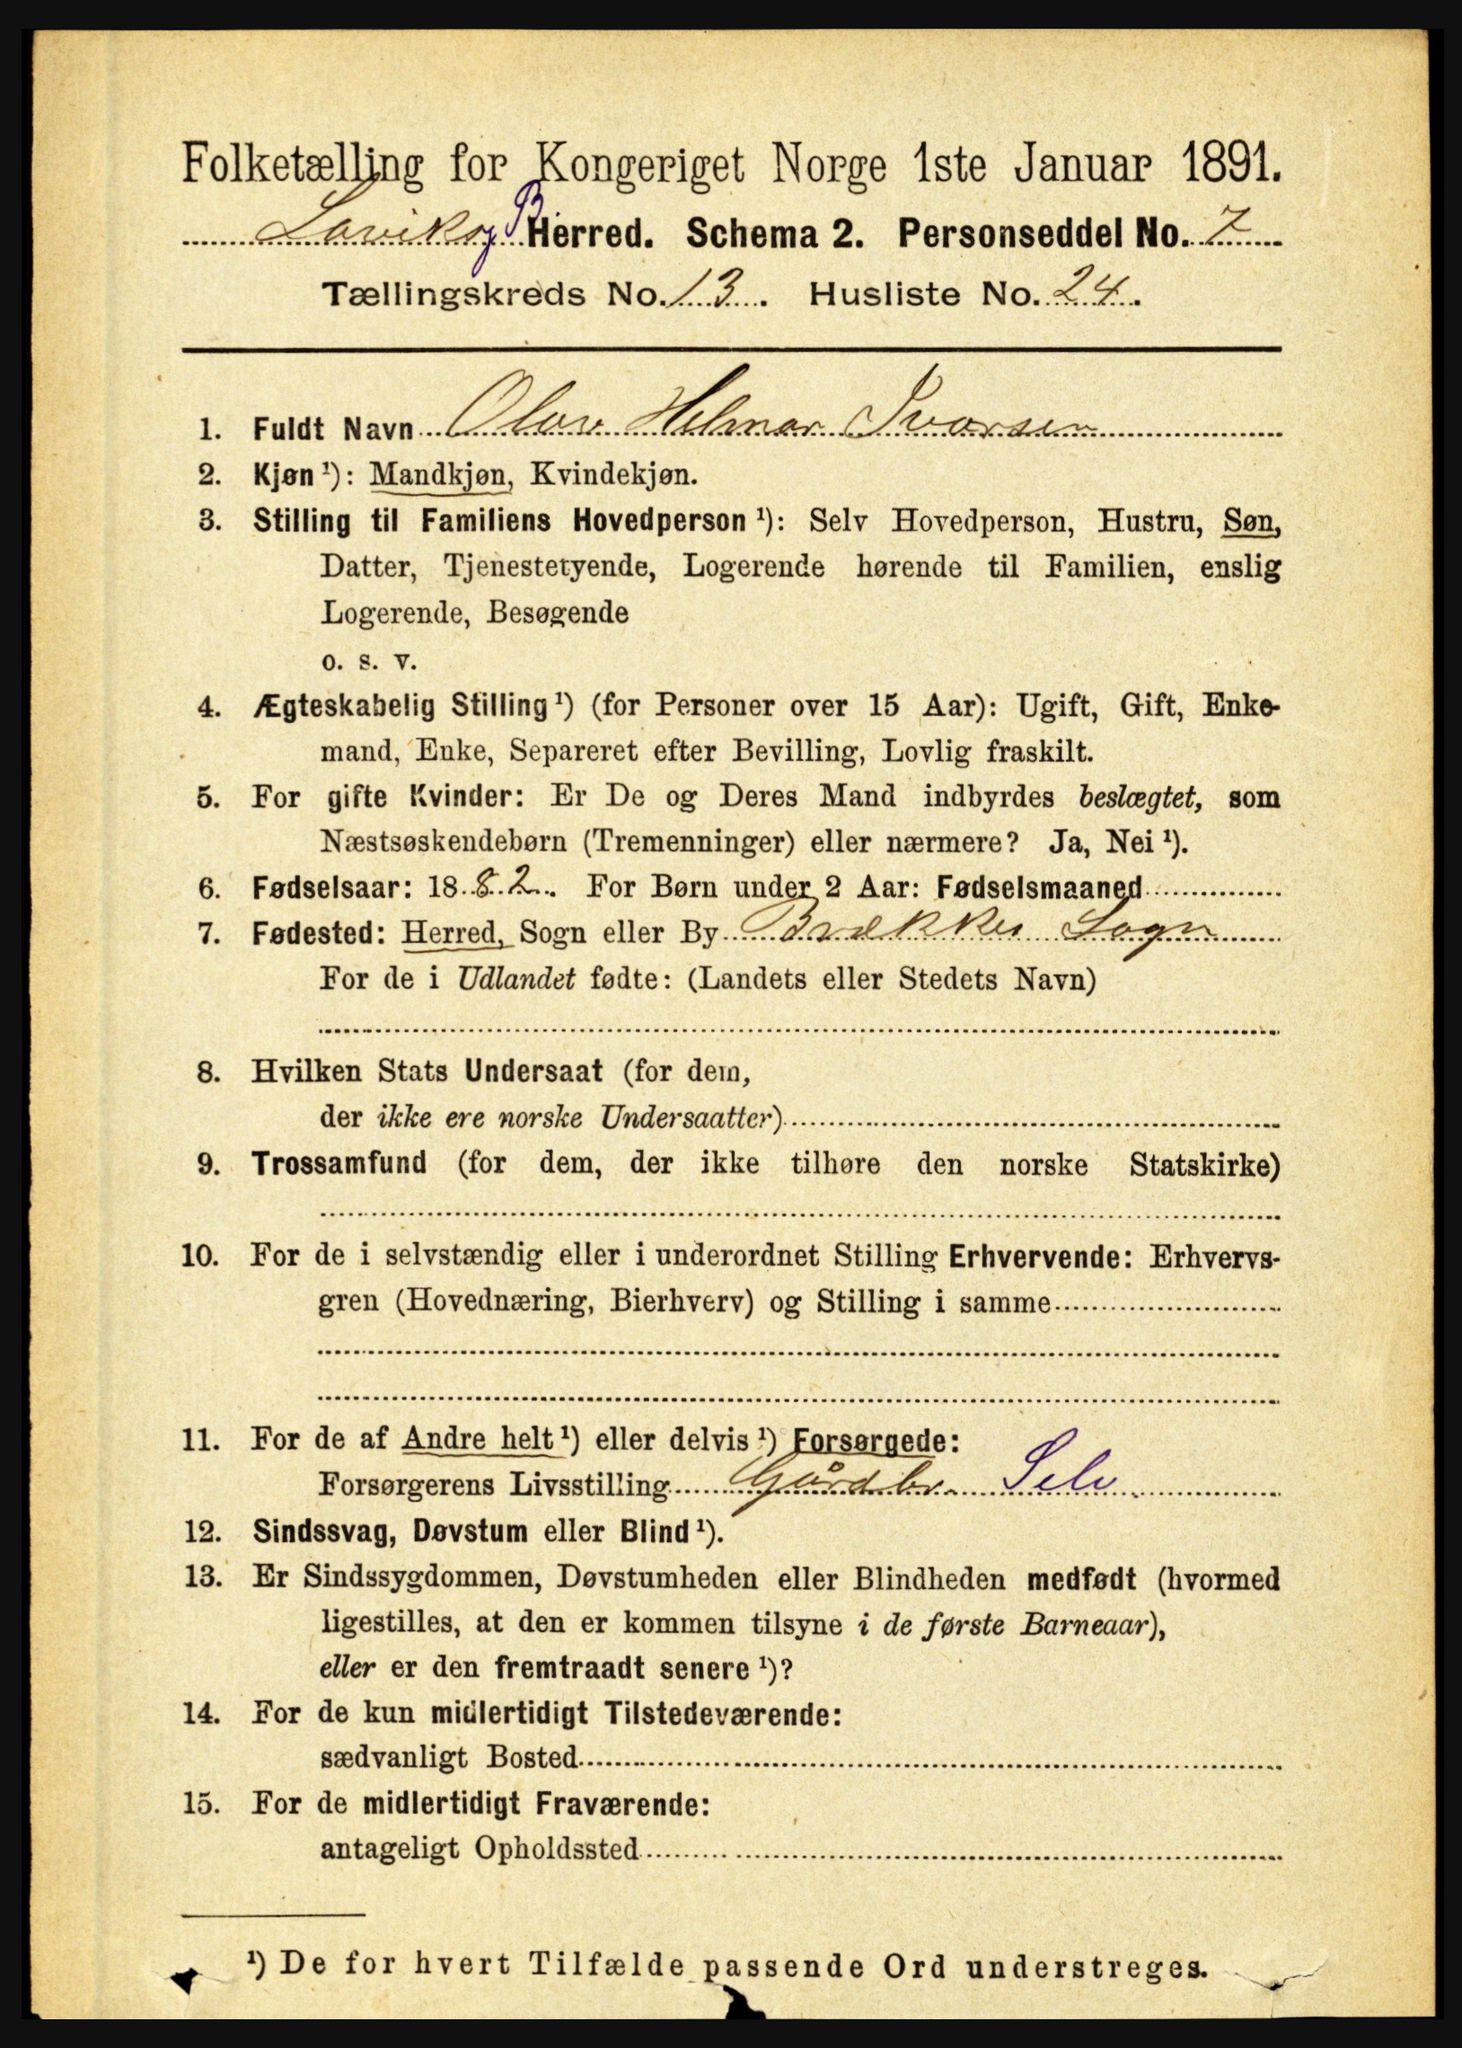 Folketælling for Kongeriget Norge 1ste Januar 1891.
Lavik og B. Herred. Schema 2. Personseddel No. 7
Tællingskreds No. 13. Husliste No. 24.
1. Fuldt Navn Olav Helmar Ivarsen
2. Kjøn ¹): Mandkjøn, Kvindekjøn.
3. Stilling til Familiens Hovedperson ¹): Selv Hovedperson, Hustru, Søn,
Datter, Tjenestetyende, Logerende hørende til Familien, enslig
Logerende, Besøgende
o. s. v.
4. Ægteskabelig Stilling ¹) (for Personer over 15 Aar): Ugift, Gift, Enke-
mand, Enke, Separeret efter Bevilling, Lovlig fraskilt.
5. For gifte Kvinder: Er De og Deres Mand indbyrdes beslægtet, som
Næstsøskendebørn (Tremenninger) eller nærmere? Ja, Nei ¹).
6. Fødselsaar: 1882. For Børn under 2 Aar: Fødselsmaaned
7. Fødested: Herred, Sogn eller By Brækkes Sogn
For de i Udlandet fødte: (Landets eller Stedets Navn)
8. Hvilken Stats Undersaat (for dem,
der ikke ere norske Undersaatter)
9. Trossamfund (for dem, der ikke tilhøre den norske Statskirke)
10. For de i selvstændig eller i underordnet Stilling Erhvervende: Erhvervs-
gren (Hovednæring, Bierhverv) og Stilling i samme
11. For de af Andre helt ¹) eller delvis ¹) Forsørgede:
Forsørgerens Livsstilling Gårdbr. Selv
12. Sindssvag, Døvstum eller Blind ¹).
13. Er Sindssygdommen, Døvstumheden eller Blindheden medfødt (hvormed
ligestilles, at den er kommen tilsyne i de første Barneaar),
eller er den fremtraadt senere ¹)?
14. For de kun midlertidigt Tilstedeværende:
sædvanligt Bosted
15. For de midlertidigt Fraværende:
antageligt Opholdssted
¹) De for hvert Tilfælde passende Ord understreges.